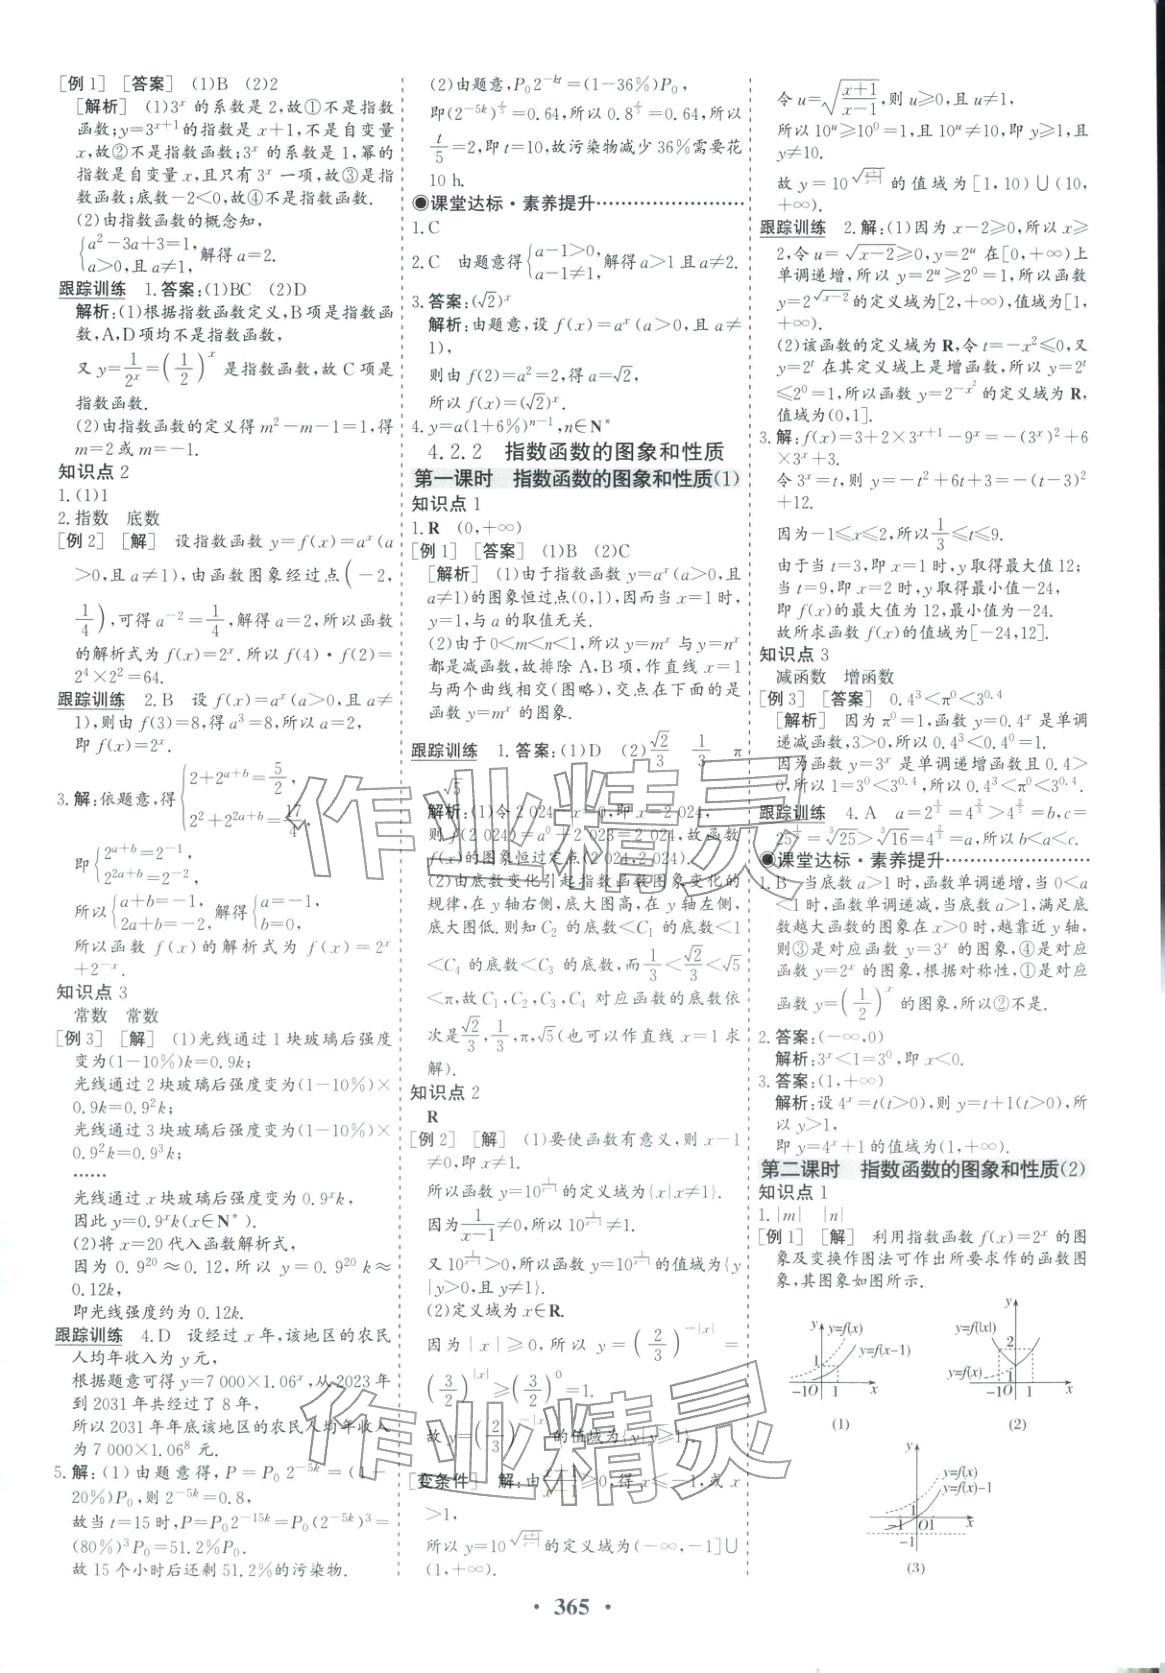 [例1] [答案] (1)B (2)2
[解析] (1)3^x 的系数是 2,故①不是指数
函数;y=3^{x+1}的指数是 x+1,不是自变量
x,故②不是指数函数;3^x 的系数是 1,幂的
指数是自变量 x,且只有 3^x 一项,故③是指
数函数;底数-2<0,故④不是指数函数.
(2)由指数函数的概念知,
{a²-3a+3=1, a>0,且 a≠1, 解得 a=2.
跟踪训练 1.答案:(1)BC (2)D
解析:(1)根据指数函数定义,B项是指数函
数,A,D项均不是指数函数,
又 y=1/2^x=(1/2)^x 是指数函数,故 C 项是
指数函数.
(2)由指数函数的定义得 m²-m-1=1,得
m=2 或 m=-1.
知识点 2
1.(1)1
2.指数 底数
[例2] [解] 设指数函数 y=f(x)=a^x(a
>0,且 a≠1),由函数图象经过点(-2,
1/4),可得 a^{-2}=1/4,解得 a=2,所以函数
的解析式为 f(x)=2^x.所以 f(4)·f(2)=
2⁴×2²=64.
跟踪训练 2.B 设 f(x)=a^x(a>0,且 a≠
1),则由 f(3)=8,得 a³=8,所以 a=2,
即 f(x)=2^x.
3.解:依题意,得{2+2^{a+b}=5/2, 2²+2^{2a+b}=17/4,
即{2^{a+b}=2^{-1}, 2^{2a+b}=2^{-2},
所以{a+b=-1, 2a+b=-2, 解得{a=-1, b=0,
所以函数 f(x)的解析式为 f(x)=2^x
+2^{-x}.
知识点 3
常数 常数
[例3] [解] (1)光线通过 1 块玻璃后强度
变为(1-10%)k=0.9k;
光线通过 2 块玻璃后强度变为(1-10%)×
0.9k=0.9²k;
光线通过 3 块玻璃后强度变为(1-10%)×
0.9²k=0.9³k;
……
光线通过 x 块玻璃后强度变为 0.9^xk,
因此 y=0.9^xk(x∈N*).
(2)将 x=20 代入函数解析式,
因为 0.9²⁰≈0.12,所以 y=0.9²⁰k≈
0.12k,
即光线强度约为 0.12k.
跟踪训练 4.D 设经过 x 年,该地区的农民
人均年收入为 y 元,
根据题意可得 y=7 000×1.06^x,从 2023 年
到 2031 年共经过了 8 年,
所以 2031 年年底该地区的农民人均年收入
为 7 000×1.06⁸ 元.
5.解:(1)由题意得,P=P₀2^{-5k}=(1-
20%)P₀,则 2^{-5k}=0.8,
故当 t=15 时,P=P₀2^{-15k}=P₀(2^{-5k})³=
(80%)³P₀=51.2%P₀.
故 15 个小时后还剩 51.2%的污染物.
(2)由题意,P₀2^{-kt}=(1-36%)P₀,
即(2^{-5k})^{t/5}=0.64,所以 0.8^{t/5}=0.64,所以
t/5=2,即 t=10,故污染物减少 36%需要花
10 h.
◉课堂达标·素养提升
1.C
2.C 由题意得{a-1>0, a-1≠1, 解得 a>1 且 a≠2.
3.答案:(√2)^x
解析:由题意,设 f(x)=a^x(a>0,且 a≠
1),
则由 f(2)=a²=2,得 a=√2,
所以 f(x)=(√2)^x.
4.y=a(1+6%)^{n-1},n∈N*
4.2.2 指数函数的图象和性质
第一课时 指数函数的图象和性质(1)
知识点 1
1.R (0,+∞)
[例1] [答案] (1)B (2)C
[解析] (1)由于指数函数 y=a^x(a>0,且
a≠1)的图象恒过点(0,1),因而当 x=1 时,
y=1,与 a 的取值无关.
(2)由于 0<m<n<1,所以 y=m^x 与 y=n^x
都是减函数,故排除 A,B项,作直线 x=1
与两个曲线相交(图略),交点在下面的是
函数 y=m^x 的图象.
跟踪训练 1.答案:(1)D (2)√2/3 1/3 π
√5
解析:(1)令 2 024-x=0,即 x=2 024,
则 f(2 024)=a⁰+2 023=2 024,故函数
f(x)的图象恒过定点(2 024,2 024).
(2)由底数变化引起指数函数图象变化的
规律,在 y 轴右侧,底大图高,在 y 轴左侧,
底大图低.则知 C₂ 的底数<C₁ 的底数<1
<C₄ 的底数<C₃ 的底数,而1/3<√2/3<√5
<π,故 C₁,C₂,C₃,C₄ 对应函数的底数依
次是√2/3,1/3,π,√5(也可以作直线 x=1 求
解).
知识点 2
R
[例2] [解] (1)要使函数有意义,则 x-1
≠0,即 x≠1.
所以函数 y=10^{1/(x-1)} 的定义域为{x|x≠1}.
因为1/(x-1)≠0,所以 10^{1/(x-1)}≠1.
又 10^{1/(x-1)}>0,所以函数 y=10^{1/(x-1)} 的值域为{y
|y>0,且 y≠1}.
(2)定义域为 x∈R.
因为|x|≥0,所以 y=(2/3)^{-|x|}=
(3/2)^{|x|}≥(3/2)⁰=1.
故 y=(2/3)^{-|x|} 的值域为{y|y≥1}.
[变条件] 解:由(x+1)/(x-1)≥0,得 x≤-1,或 x
>1,
所以 y=10^{√((x+1)/(x-1))} 的定义域为(-∞,-1]∪
(1,+∞).
令 u=√((x+1)/(x-1)),则 u≥0,且 u≠1,
所以 10^u≥10⁰=1,且 10^u≠10,即 y≥1,且
y≠10.
故 y=10^{√((x+1)/(x-1))} 的值域为[1,10)∪(10,
+∞).
跟踪训练 2.解:(1)因为 x-2≥0,所以 x≥
2,令 u=√(x-2)≥0,y=2^u 在[0,+∞)上
单调递增,所以 y=2^u≥2⁰=1,所以函数
y=2^{√(x-2)} 的定义域为[2,+∞),值域为[1,
+∞).
(2)该函数的定义域为 R,令 t=-x²≤0,又
y=2^t 在其定义域上是增函数,所以 y=2^t
≤2⁰=1,所以函数 y=2^{-x²} 的定义域为 R,
值域为(0,1].
3.解:f(x)=3+2×3^{x+1}-9^x=-(3^x)²+6
×3^x+3.
令 3^x=t,则 y=-t²+6t+3=-(t-3)²
+12.
因为-1≤x≤2,所以1/3≤t≤9.
故当 t=3,即 x=1 时,y 取得最大值 12;
当 t=9,即 x=2 时,y 取得最小值-24,
即 f(x)的最大值为 12,最小值为-24.
故所求函数 f(x)的值域为[-24,12].
知识点 3
减函数 增函数
[例3] [答案] 0.4³<π⁰<3^{0.4}
[解析] 因为 π⁰=1,函数 y=0.4^x 是单调
递减函数,3>0,所以 0.4³<0.4⁰=1.
因为函数 y=3^x 是单调递增函数且 0.4>
0,所以 1=3⁰<3^{0.4},所以 0.4³<π⁰<3^{0.4}.
跟踪训练 4.A a=2^{4/3}=4^{2/3}>4^{2/5}=b,c=
25^{1/3}=∛25>∛16=4^{2/3}=a,所以 b<a<c.
◉课堂达标·素养提升
1.B 当底数 a>1 时,函数单调递增,当 0<a
<1 时,函数单调递减,当底数 a>1,满足底
数越大函数的图象在 x>0 时,越靠近 y 轴,
则③是对应函数 y=3^x 的图象,④是对应
函数 y=2^x 的图象,根据对称性,①是对应
函数 y=(1/2)^x 的图象,所以②不是.
2.答案:(-∞,0)
解析:3^x<1=3⁰,即 x<0.
3.答案:(1,+∞)
解析:设 4^x=t(t>0),则 y=t+1(t>0),所
以 y>1,
即 y=4^x+1 的值域为(1,+∞).
第二课时 指数函数的图象和性质(2)
知识点 1
1.|m| |n|
[例1] [解] 利用指数函数 f(x)=2^x 的图
象及变换作图法可作出所要求作的函数图
象,其图象如图所示.
y y=f(x) y=f(x-1) 1 -1 O 1 x
(1)
y y=f(|x|) 2 1 y=f(x) -1 O 1 x
(2)
y y=f(x) y=f(x)-1 1 -1 O 1 x -1
(3)
作业精灵
作业精灵
· 365 ·